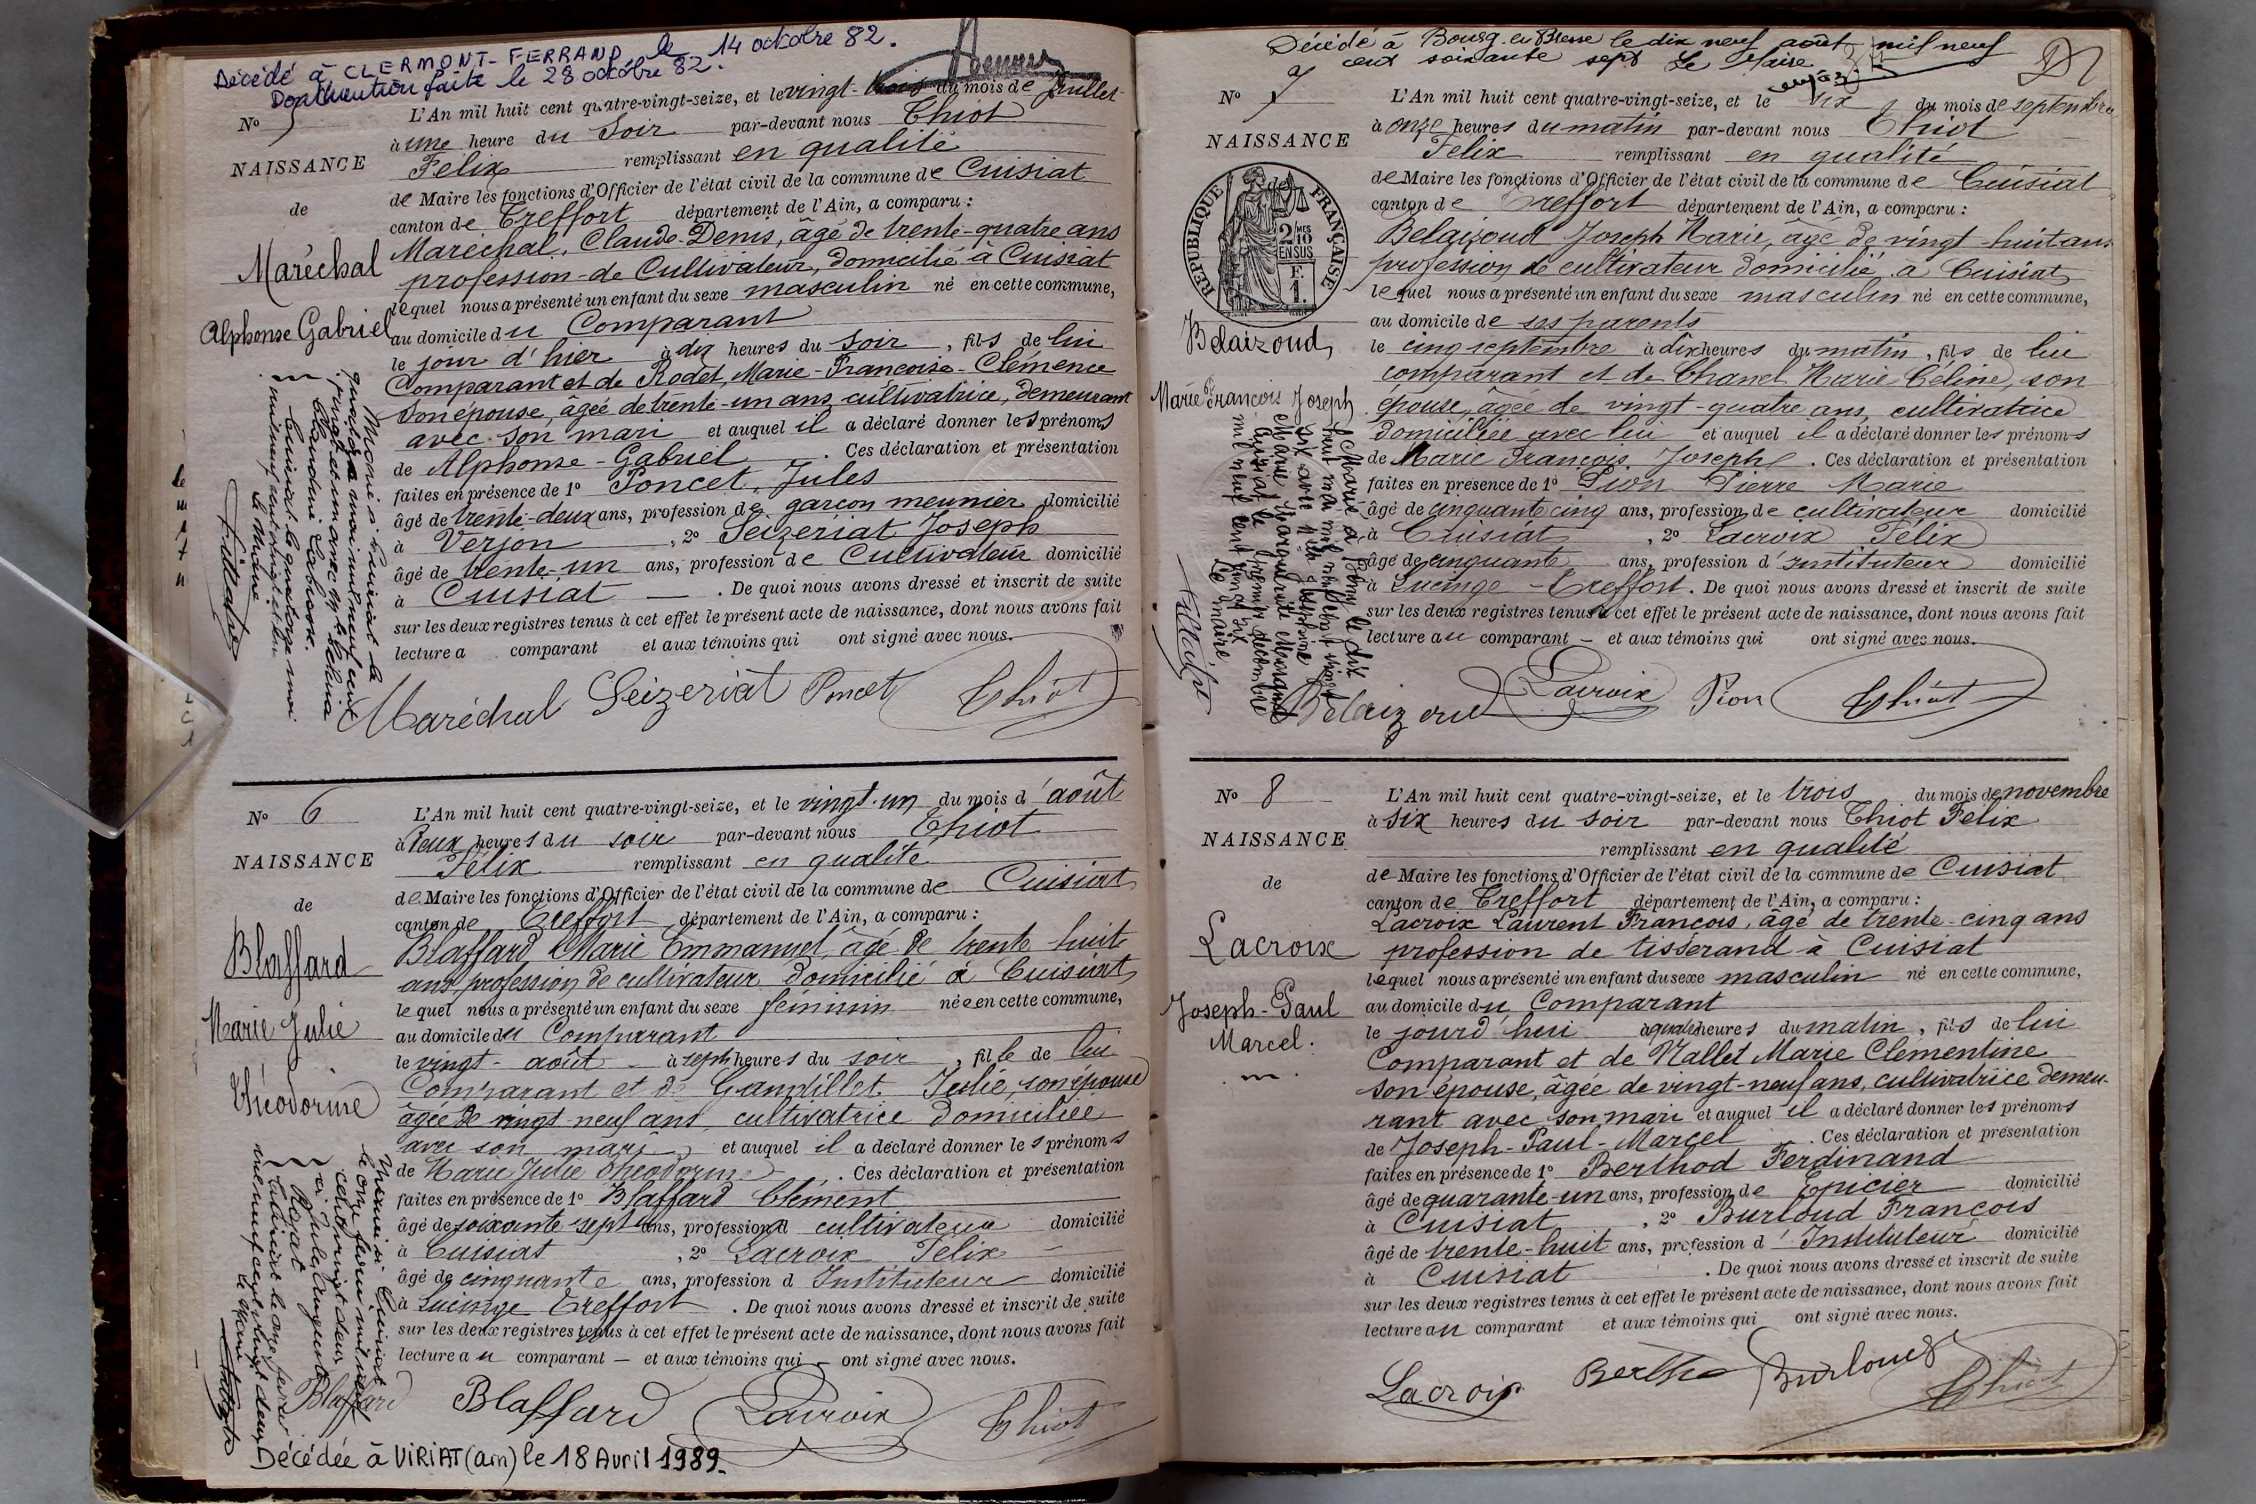 Décédé à CLERMONT-FERRAND le 14 octobre 82.
faite le 28 octobre 82.
No 5
NAISSANCE
de
Maréchal
Alphonse Gabriel
L'An mil huit cent quatre-vingt-seize, et le vingt-trois du mois de Juillet
à une heure du Soir par-devant nous Thiot
Felix remplissant en qualité
de Maire les fonctions d'Officier de l'état civil de la commune de Cuisiat
canton de Treffort département de l'Ain, a comparu :
Maréchal, Claude-Denis, âgé de trente-quatre ans
profession de Cultivateur, domicilié à Cuisiat
lequel nous a présenté un enfant du sexe masculin né en cette commune,
au domicile du Comparant
le jour d'hier à dix heures du Soir, fils de lui
Comparant et de Rodet, Marie-Francoise-Clémence
son épouse, âgée de trente-un ans, cultivatrice, demeurant
avec son mari et auquel il a déclaré donner les prénoms
de Alphonse-Gabriel. Ces déclaration et présentation
faites en présence de 1º Poncet, Jules
âgé de trente-deux ans, profession de garçon meunier domicilié
à Verjon, 2º Seizeriat Joseph
âgé de trente-un ans, profession de Cultivateur domicilié
à Cuisiat. De quoi nous avons dressé et inscrit de suite
sur les deux registres tenus à cet effet le présent acte de naissance, dont nous avons fait
lecture a comparant et aux témoins qui ont signé avec nous.
Maréchal Seizeriat Poncet Thiot
Marié à Cuisiat le
quatorze mai mil neuf cent
vingt et un avec
Claudine
Cuisiat le quatorze mai
mil neuf cent vingt et un
le Maire
No 6
NAISSANCE
de
Blaffard
Marie Julie
Théodorine
L'An mil huit cent quatre-vingt-seize, et le vingt-un du mois d'août
à Deux heures du soir par-devant nous Thiot
Félix remplissant en qualité
de Maire les fonctions d'Officier de l'état civil de la commune de Cuisiat
canton de Treffort département de l'Ain, a comparu :
Blaffard, Marie Emmanuel, âgé de trente-huit
ans, profession de cultivateur domicilié à Cuisiat
lequel nous a présenté un enfant du sexe féminin née en cette commune,
au domicile du Comparant
le vingt-août à sept heures du soir, fille de lui
Comparant et de Gandillet Julie, son épouse
âgée de vingt-neuf ans, cultivatrice domiciliée
avec son mari et auquel il a déclaré donner les prénoms
de Marie Julie Théodorine. Ces déclaration et présentation
faites en présence de 1º Blaffard Clément
âgé de soixante-sept ans, profession d cultivateur domicilié
à Cuisiat, 2º Lacroix Félix
âgé de cinquante ans, profession d Instituteur domicilié
à Lucinge Treffort. De quoi nous avons dressé et inscrit de suite
sur les deux registres tenus à cet effet le présent acte de naissance, dont nous avons fait
lecture au comparant et aux témoins qui ont signé avec nous.
Blaffard Blaffard Lacroix Thiot
Mariée à Cuisiat
le onze février mil neuf
cent vingt deux
à Jules Auguste
le onze février
mil neuf cent vingt deux
le Maire
Décédée à VIRIAT (ain) le 18 Avril 1989.
Décédé à Bourg en Bresse le dix neuf août mil neuf
cent soixante sept Le Maire
No 7
NAISSANCE
RÉPUBLIQUE FRANÇAISE
2/10 MES
EN SUS
F.
1.
Belaizoud,
Marie François Joseph
L'An mil huit cent quatre-vingt-seize, et le six du mois de septembre
à onze heures du matin par-devant nous Thiot
Felix remplissant en qualité
de Maire les fonctions d'Officier de l'état civil de la commune de Cuisiat
canton de Treffort département de l'Ain, a comparu :
Belaizoud Joseph Marie, âgé de vingt-huit ans
profession de cultivateur domicilié à Cuisiat
lequel nous a présenté un enfant du sexe masculin né en cette commune,
au domicile de ses parents
le cinq septembre à dix heures du matin, fils de lui
comparant et de Chanel Marie Céline, son
épouse, âgée de vingt-quatre ans, cultivatrice
domiciliée avec lui et auquel il a déclaré donner les prénoms
de Marie François Joseph. Ces déclaration et présentation
faites en présence de 1º Pion Pierre Marie
âgé de cinquante cinq ans, profession de cultivateur domicilié
à Cuisiat, 2º Lacroix Félix
âgé de cinquante ans, profession d'instituteur domicilié
à Lucinge-Treffort. De quoi nous avons dressé et inscrit de suite
sur les deux registres tenus à cet effet le présent acte de naissance, dont nous avons fait
lecture au comparant et aux témoins qui ont signé avec nous.
Belaizoud Lacroix Pion Thiot
Marié à le dix
huit mai mil neuf cent vingt
Marie Marguerite
Cuisiat le premier décembre
mil neuf cent vingt six
Le Maire
No 8
NAISSANCE
de
Lacroix
Joseph-Paul
Marcel.
L'An mil huit cent quatre-vingt-seize, et le trois du mois de novembre
à six heures du soir par-devant nous Thiot Félix
remplissant en qualité
de Maire les fonctions d'Officier de l'état civil de la commune de Cuisiat
canton de Treffort département de l'Ain, a comparu :
Lacroix Laurent François, âgé de trente-cinq ans
profession de tisserand à Cuisiat
lequel nous a présenté un enfant du sexe masculin né en cette commune,
au domicile du Comparant
le jourd'hui à quatre heures du matin, fils de lui
Comparant et de Mallet Marie Clémentine
son épouse, âgée de vingt-neuf ans, cultivatrice demeu-
rant avec son mari et auquel il a déclaré donner les prénoms
de Joseph-Paul-Marcel. Ces déclaration et présentation
faites en présence de 1º Berthod Ferdinand
âgé de quarante-un ans, profession de Epicier domicilié
à Cuisiat, 2º Burloud François
âgé de trente-huit ans, profession d'Instituteur domicilié
à Cuisiat. De quoi nous avons dressé et inscrit de suite
sur les deux registres tenus à cet effet le présent acte de naissance, dont nous avons fait
lecture au comparant et aux témoins qui ont signé avec nous.
Lacroix Berthod Burloud Thiot